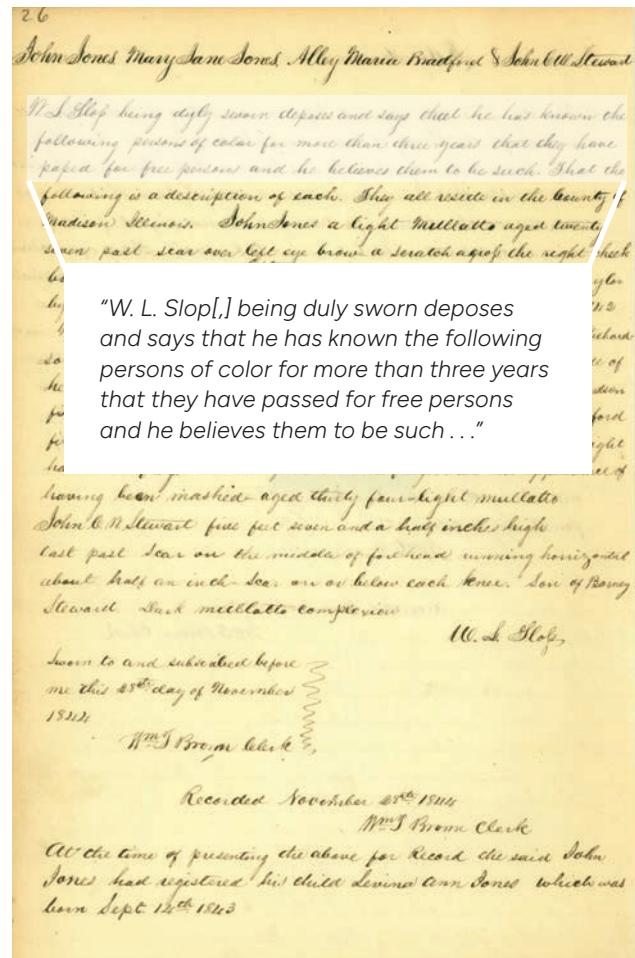 26
John Jones Mary Jane Jones Alley Maria Bradford & John C. W. Steward
W L Slop being duly sworn deposes and says that he has known the
following persons of color for more than three years that they have
passed for free persons and he believes them to be such. That the
following is a description of each. They all reside in the County of
Madison Illinois. John Jones a light Mullatto aged twenty
seven past scar over left eye brow a scratch across the right cheek
“W. L. Slop[,] being duly sworn deposes
and says that he has known the following
persons of color for more than three years
that they have passed for free persons
and he believes them to be such . . .”
having been mashed aged thirty four light mullatto
John C. W. Stewart five feet seven and a half inches high
last past scar on the middle of forehead running horizontal
about half an inch scar on or below each knee. Son of Barney
Steward Dark mullatto complexion
W. L. Slop
Sworn to and subscribed before
me this 28th day of November
1844
Wm T Brown Clerk
Recorded November 28th 1844
Wm T Brown Clerk
At the time of presenting the above for Record the said John
Jones had registered his child Levina Ann Jones which was
born Sept. 14th 1843